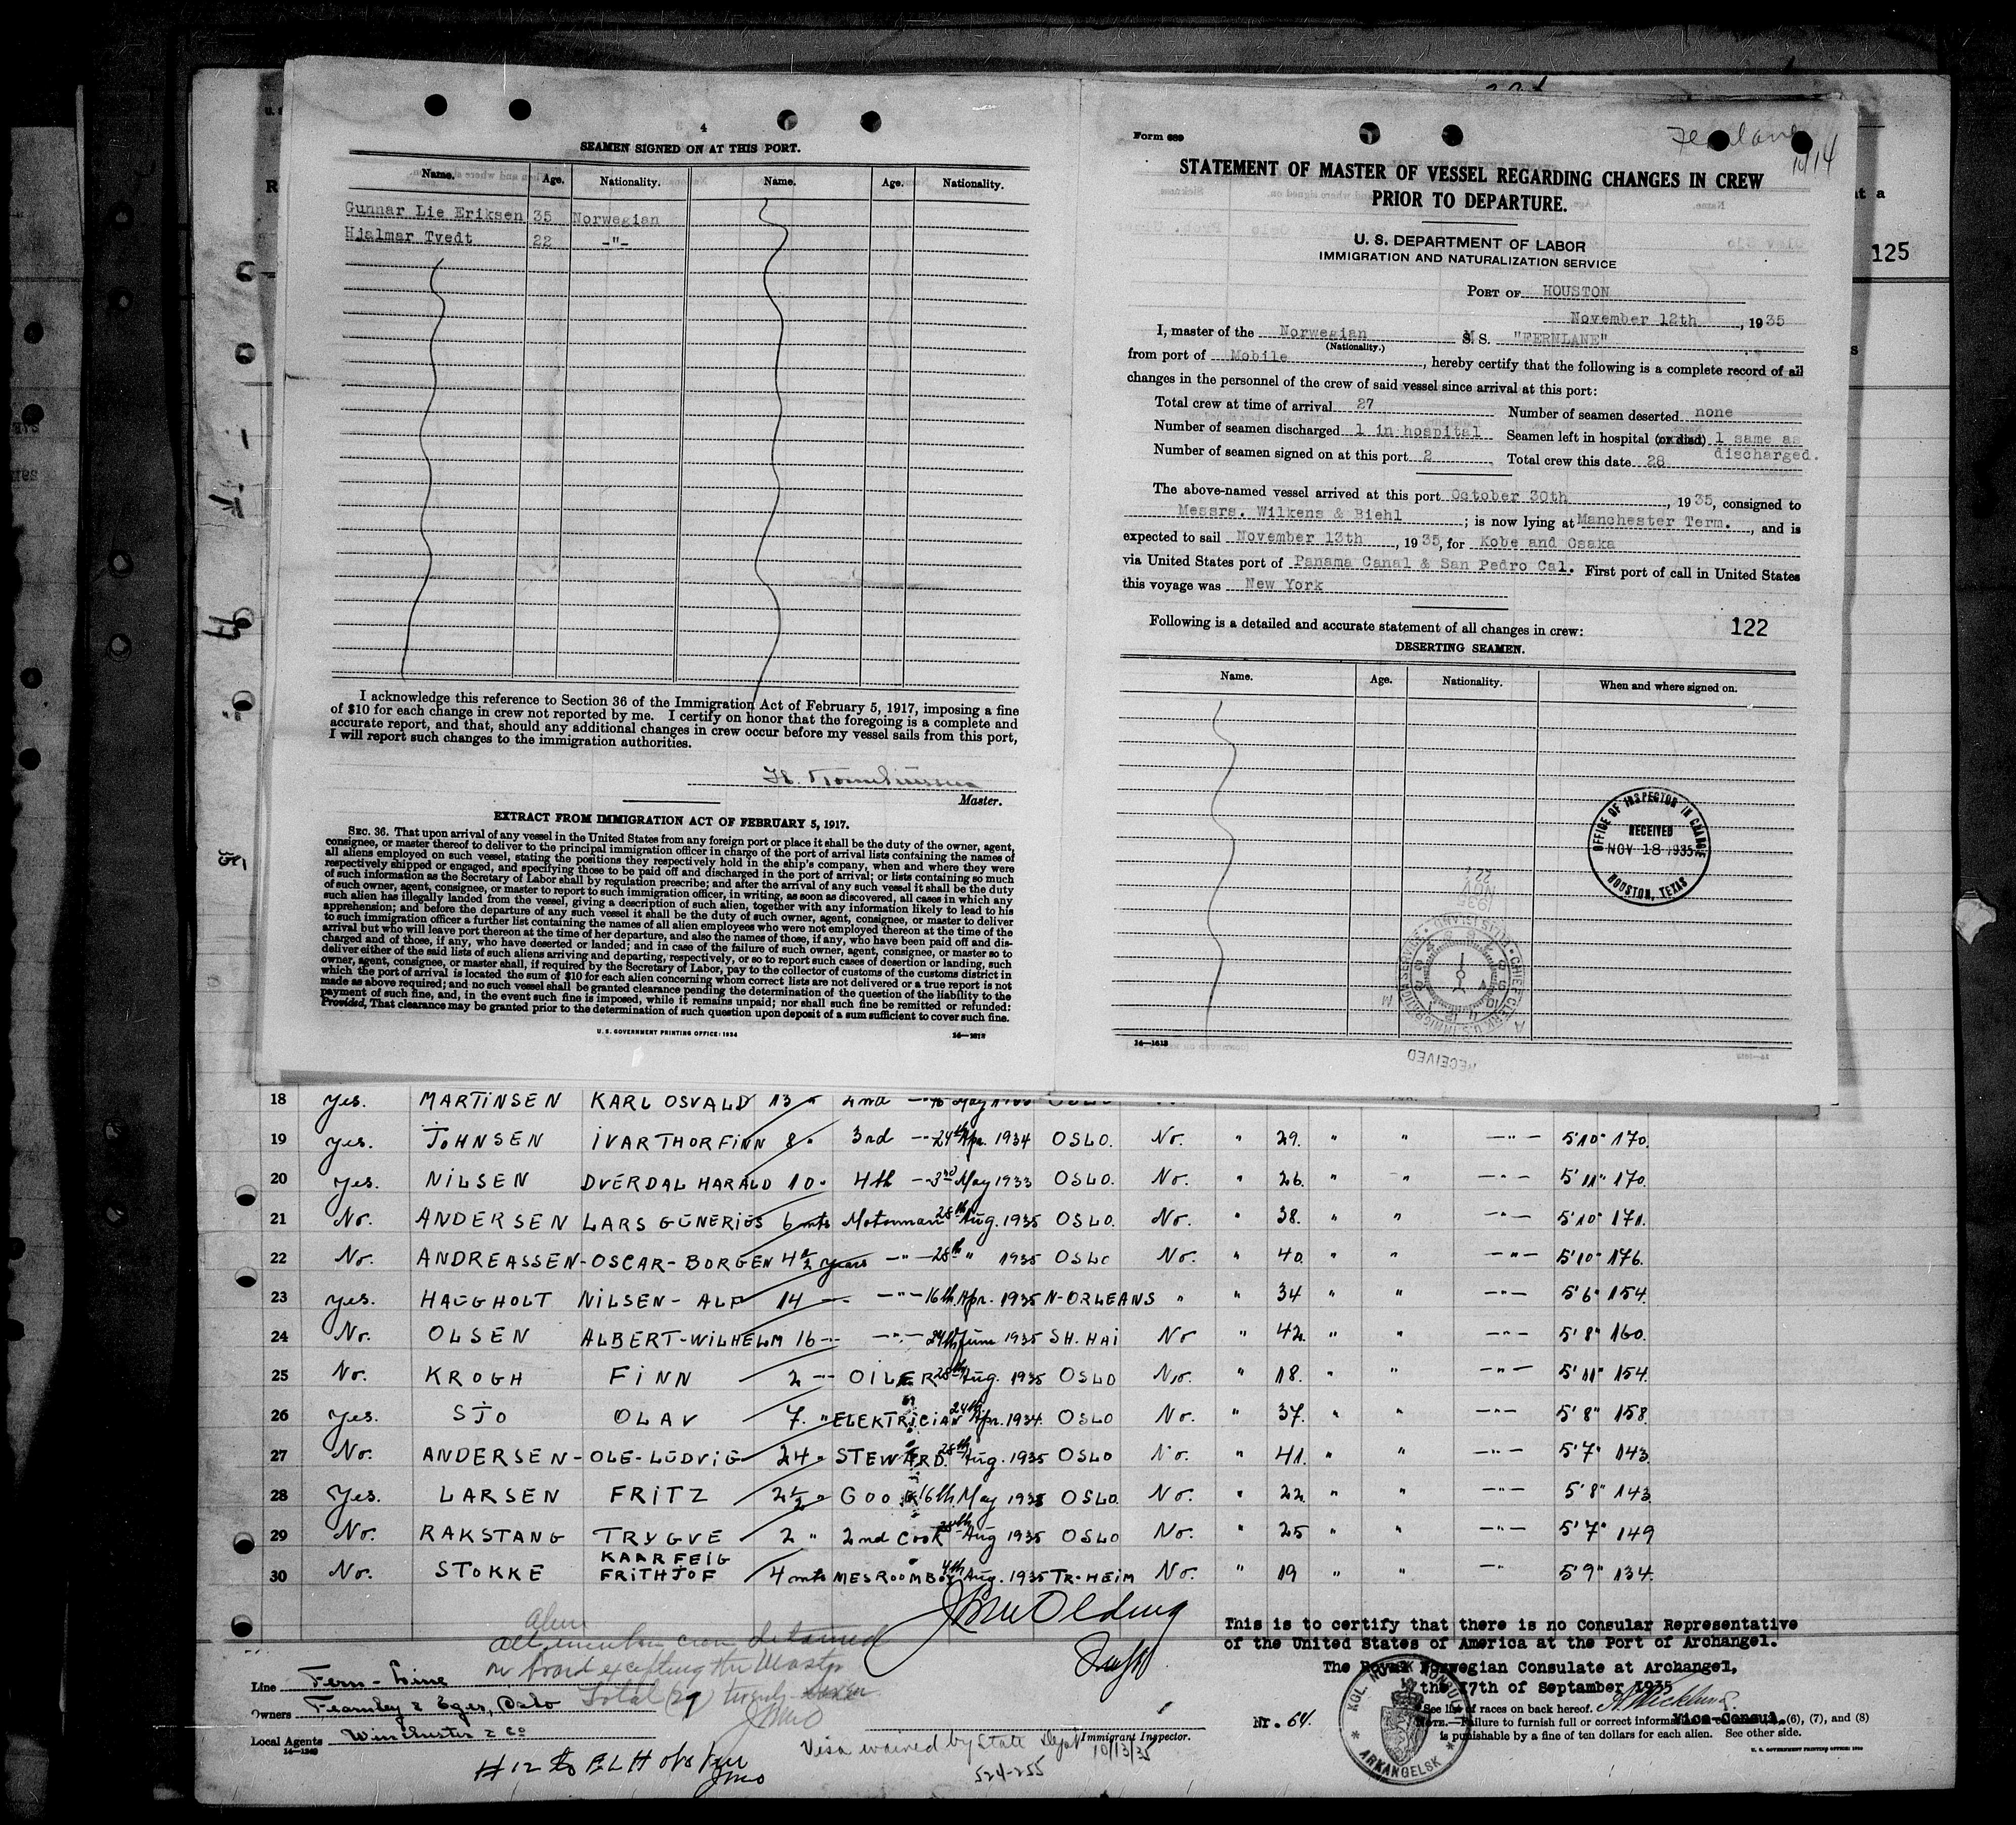 4
SEAMEN SIGNED ON AT THIS PORT.
Name. Age. Nationality. Name. Age. Nationality.
Gunnar Lie Eriksen 35 Norwegian
Hjalmar Tvedt 22 -"-
I acknowledge this reference to Section 36 of the Immigration Act of February 5, 1917, imposing a fine
of $10 for each change in crew not reported by me. I certify on honor that the foregoing is a complete and
accurate report, and that, should any additional changes in crew occur before my vessel sails from this port,
I will report such changes to the immigration authorities.
Master.
EXTRACT FROM IMMIGRATION ACT OF FEBRUARY 5, 1917.
SEC. 36. That upon arrival of any vessel in the United States from any foreign port or place it shall be the duty of the owner, agent,
consignee, or master thereof to deliver to the principal immigration officer in charge of the port of arrival lists containing the names of
all aliens employed on such vessel, stating the positions they respectively hold in the ship's company, when and where they were
respectively shipped or engaged, and specifying those to be paid off and discharged in the port of arrival; or lists containing so much
of such information as the Secretary of Labor shall by regulation prescribe; and after the arrival of any such vessel it shall be the duty
of such owner, agent, consignee, or master to report to such immigration officer, in writing, as soon as discovered, all cases in which any
such alien has illegally landed from the vessel, giving a description of such alien, together with any information likely to lead to his
apprehension; and before the departure of any such vessel it shall be the duty of such owner, agent, consignee, or master to deliver
to such immigration officer a further list containing the names of all alien employees who were not employed thereon at the time of the
arrival but who will leave port thereon at the time of her departure, and also the names of those, if any, who have been paid off and dis-
charged and of those, if any, who have deserted or landed; and in case of the failure of such owner, agent, consignee, or master so to
deliver either of the said lists of such aliens arriving and departing, respectively, or so to report such cases of desertion or landing, such
owner, agent, consignee, or master shall, if required by the Secretary of Labor, pay to the collector of customs of the customs district in
which the port of arrival is located the sum of $10 for each alien concerning whom correct lists are not delivered or a true report is not
made as above required; and no such vessel shall be granted clearance pending the determination of the question of the liability to the
payment of such fine, and, in the event such fine is imposed, while it remains unpaid; nor shall such fine be remitted or refunded:
Provided, That clearance may be granted prior to the determination of such question upon deposit of a sum sufficient to cover such fine.
U. S. GOVERNMENT PRINTING OFFICE: 1934 14—1613
Form 689
Fernlane
11/14
STATEMENT OF MASTER OF VESSEL REGARDING CHANGES IN CREW
PRIOR TO DEPARTURE.
U. S. DEPARTMENT OF LABOR
IMMIGRATION AND NATURALIZATION SERVICE
PORT OF HOUSTON
November 12th, 1935
I, master of the Norwegian M S. "FERNLANE"
(Nationality.)
from port of Mobile, hereby certify that the following is a complete record of all
changes in the personnel of the crew of said vessel since arrival at this port:
Total crew at time of arrival 27 Number of seamen deserted none
Number of seamen discharged 1 in hospital Seamen left in hospital (or died) 1 same as
discharged.
Number of seamen signed on at this port 2 Total crew this date 28
The above-named vessel arrived at this port October 30th, 1935, consigned to
Messrs. Wilkens & Biehl; is now lying at Manchester Term., and is
expected to sail November 13th, 1935, for Kobe and Osaka
via United States port of Panama Canal & San Pedro Cal. First port of call in United States
this voyage was New York
Following is a detailed and accurate statement of all changes in crew: 122
DESERTING SEAMEN.
Name. Age. Nationality. When and where signed on.
OFFICE OF INSPECTOR IN CHARGE
RECEIVED
NOV 18 1935
HOUSTON, TEXAS
14—1613
125
18 Yes. MARTINSEN KARL OSVALD 13 " 2nd
19 Yes. JOHNSEN IVAR THORFINN 8 " 3rd —"— 24th Apr. 1934 OSLO. No. " 29. " " —"— 5'10" 170.
20 Yes. NILSEN DVERDAL HARALD 10 " 4th —"— 3rd May 1933 OSLO. No. " 26. " " —"— 5'11" 170.
21 No. ANDERSEN LARS GUNERIUS 6 mts Motorman 28th Aug. 1935 OSLO. No. " 38. " " —"— 5'10" 171.
22 No. ANDREASSEN-OSCAR-BORGEN 4½ years —"— 28th " 1935 OSLO No. " 40. " " —"— 5'10" 176.
23 Yes. HAUGHOLT NILSEN-ALF 14 — —"— 16th Apr. 1935 N-ORLEANS " " 34 " " —"— 5'6" 154.
24 No. OLSEN ALBERT-WILHELM 16 — —"— 24th June 1935 SH.HAI No " 42. " " —"— 5'8" 160.
25 No. KROGH FINN 2 — OILER 28th Aug. 1935 OSLO No. " 18. " " —"— 5'11" 154.
26 Yes. SJO OLAV 7. " ELEKTRICIAN 24th Apr. 1934. OSLO No. " 37. " " —"— 5'8" 158.
27 No. ANDERSEN-OLE-LUDVIG 24 " STEWARD. 28th Aug. 1935 OSLO No. " 41. " " —"— 5'7" 143.
28 Yes. LARSEN FRITZ 2½ " COOK 16th. May 1935 OSLO. No. " 22. " " —"— 5'8" 143.
29 No. RAKSTANG TRYGVE 2 " 2nd Cook 28th Aug 1935 OSLO No. " 25 " " —"— 5'7" 149
30 No. STOKKE KAARFEIG FRITHJOF 4 mts MESROOMBOY 4th Aug. 1935 TR-HEIM No. " 19 " " —"— 5'9" 134.
Alien
All members crew detained
on board excepting the Master
Total (29) twenty
This is to certify that there is no Consular Representative
of the United States of America at the Port of Archangel.
The Royal Norwegian Consulate at Archangel,
the 17th of September 1935
Vice-Consul.
Line Fern-Line
Owners Fearnley & Eger, Oslo
Local Agents Winchester & Co
14—1240
Immigrant Inspector.
Visa waived by State Dept 10/13/35
524-255
Nr. 64.
KGL. NORSK KONSULAT
ARKANGELSK
See list of races on back hereof.
NOTE.—Failure to furnish full or correct information (6), (7), and (8)
is punishable by a fine of ten dollars for each alien. See other side.
U. S. GOVERNMENT PRINTING OFFICE